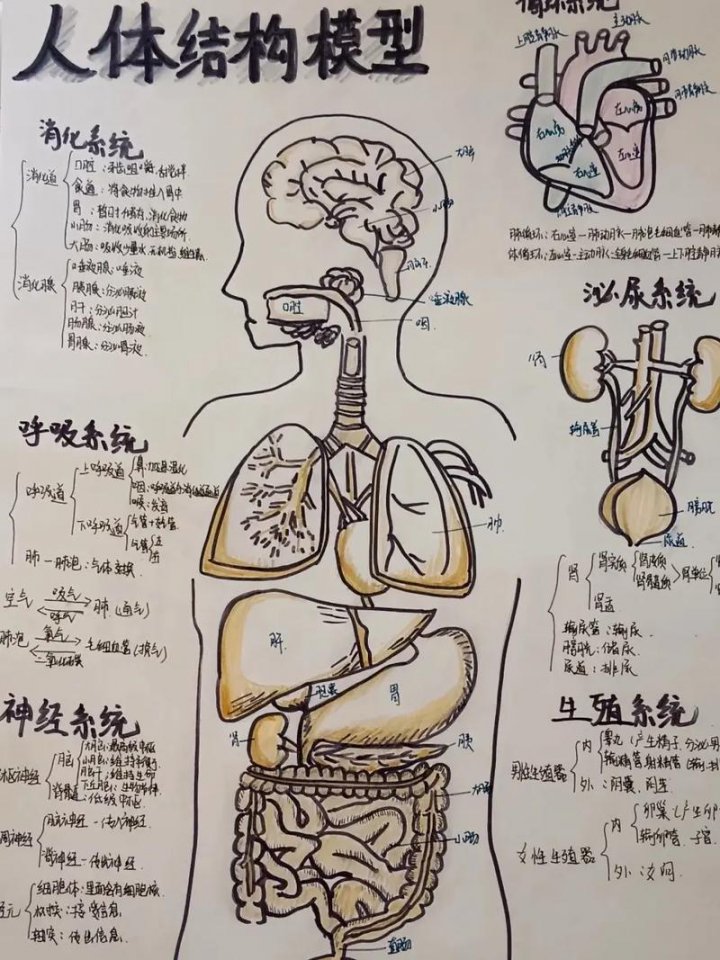 人体结构模型
循环系统
主动脉
上腔静脉
肺动脉
肺静脉
左心房
右心房
左心室
右心室
下腔静脉
肺循环:右心室—肺动脉—肺泡毛细血管—肺静
体循环:左心室—主动脉—全身毛细血管—上下腔静脉
消化系统
消化道
口腔:
食道:将食物推入胃中
胃:暂时储存,消化食物
小肠:消化吸收的主要场所
大肠:吸收少量水 无机盐
消化腺
唾液腺:唾液
胰腺:分泌胰液
肝:分泌胆汁
肠腺:分泌肠液
胃腺:分泌胃液
大脑
小脑
口腔
唾液腺
咽
泌尿系统
肾
输尿管
膀胱
尿道
呼吸系统
呼吸道
上呼吸道
鼻:加温湿化
咽:
喉:发声
下呼吸道
气管+支气管
肺—肺泡:气体交换
空气
吸气
呼气
肺(通气)
肺泡
氧气
二氧化碳
毛细血管(换气)
肺
肝
胆囊
胃
肾
胰
大肠
小肠
直肠
肾
肾实质
肾皮质
肾髓质
肾单位
肾盂
输尿管:输尿
膀胱:储尿
尿道:排尿
神经系统
枢神经
脑
大脑:最高级中枢
小脑:维持平衡
脑干:维持生命
下丘脑:
脊髓:低级中枢
周神经
脑神经—传入神经
脊神经—传出神经
细胞体:里面含有细胞核
树突:接受信息
轴突:传出信息
生殖系统
男性生殖器
内
睾丸(产生精子,分泌男
输精管 射精管
外:阴囊、阴茎
女性生殖器
内
卵巢(产生卵
输卵管、子宫
外:女阴